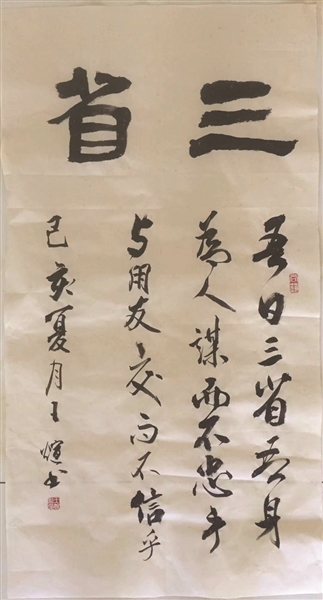 三省
吾日三省吾身
為人謀而不忠乎
与朋友交而不信乎
己亥夏月王煊书